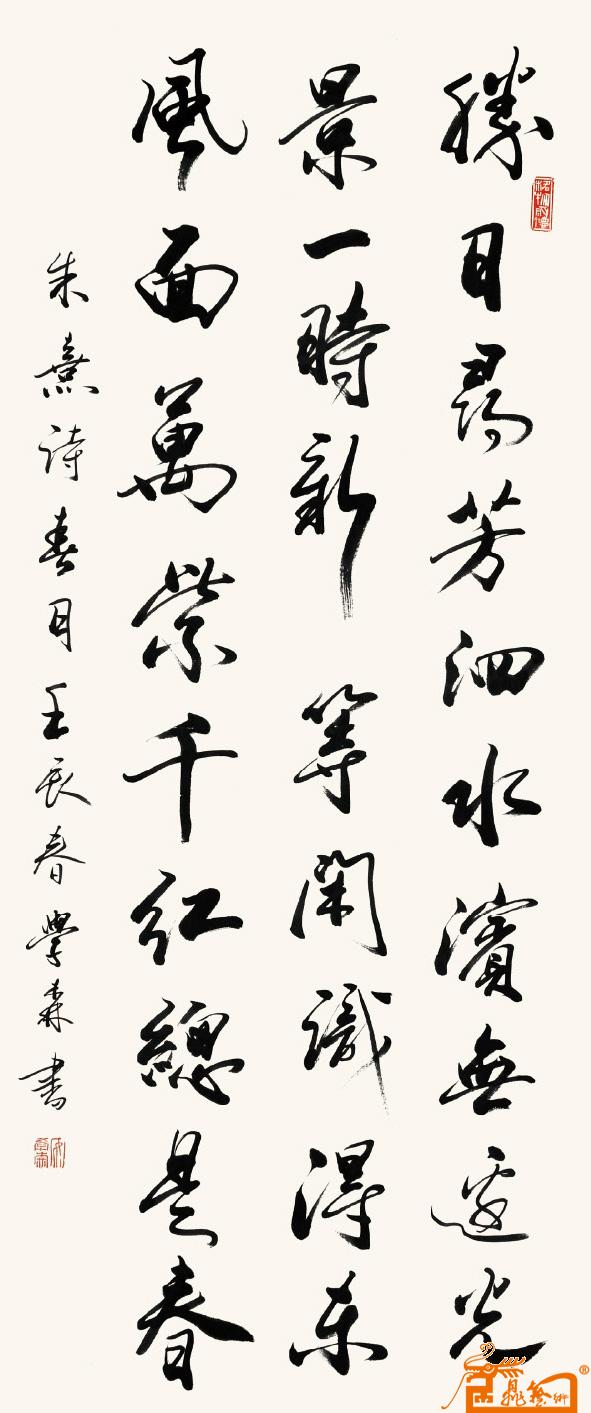 勝日尋芳泗水濱無邊光
景一時新等閑識得東
風面萬紫千紅總是春
朱熹詩春日壬辰春學森書